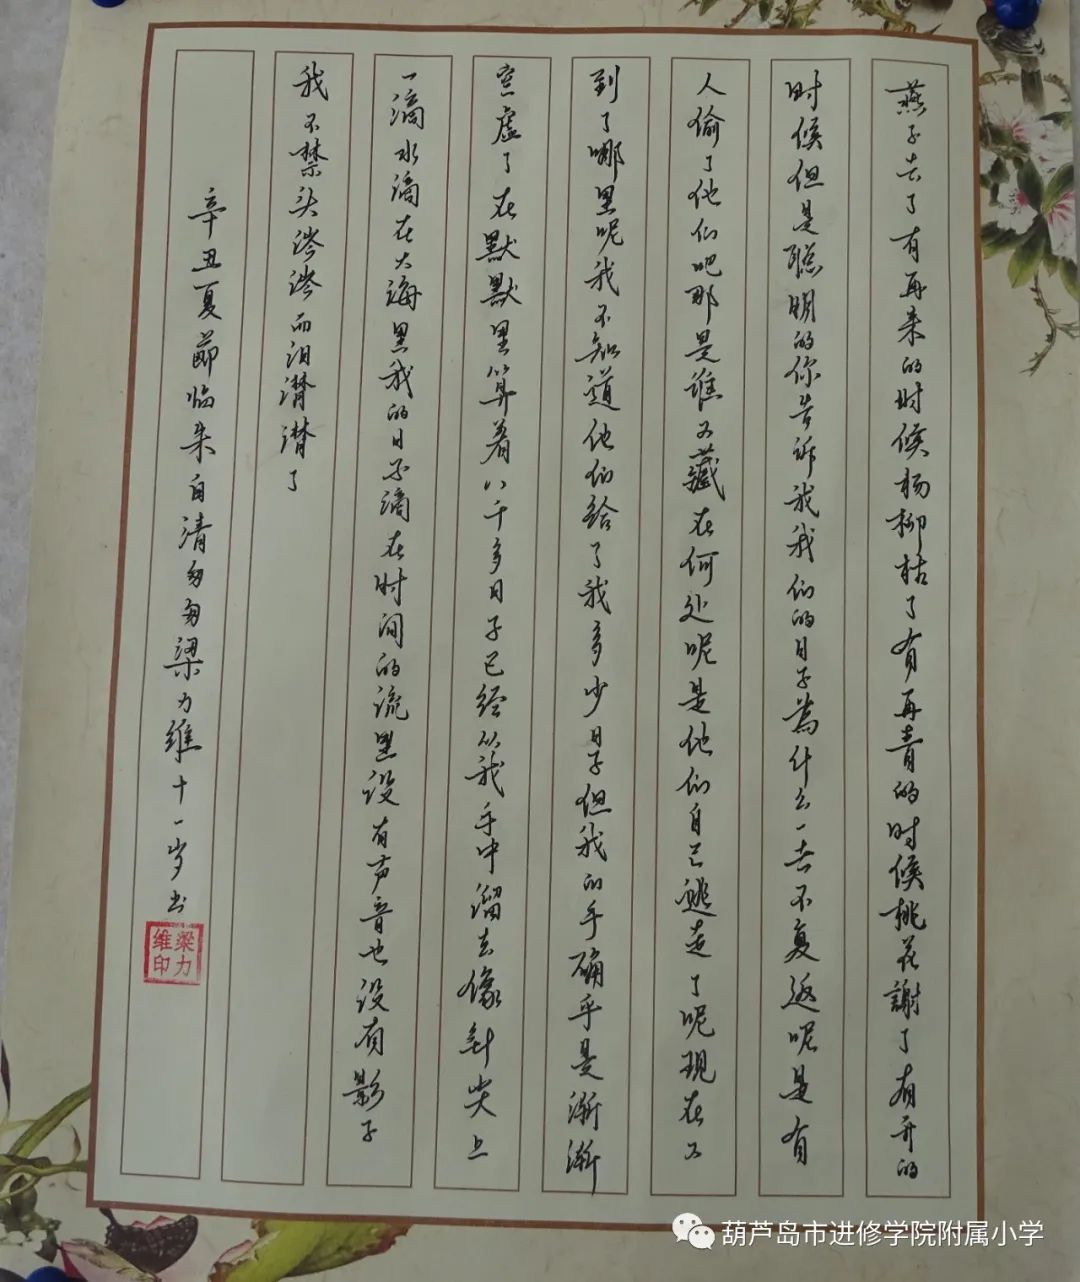 燕子去了有再来的时候杨柳枯了有再青的时候桃花謝了有再开的
时候但是聪明的你告诉我我们的日子為什么一去不复返呢是有
人偷了他们吧那是谁又藏在何处呢是他们自己逃走了呢现在又
到了哪里呢我不知道他们给了我多少日子但我的手确乎是渐渐
空虚了在默默里算着八千多日子已经从我手中溜去像針尖上
一滴水滴在大海里我的日子滴在时间的流里没有声音也没有影子
我不禁头涔涔而泪潸潸了
辛丑夏節临朱自清匆匆梁力维十一岁书
梁力维印
葫芦岛市进修学院附属小学